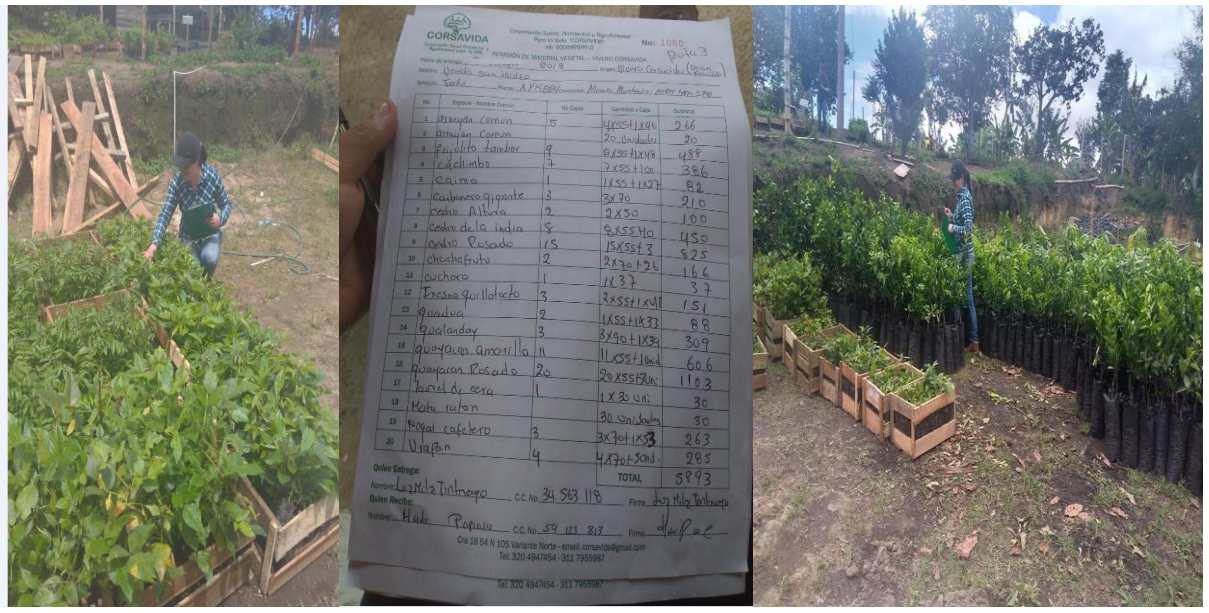 CORSAVIDA
Corporación Social, Ambiental y Agroforestal
Para la Vida "CORSAVIDA"
No: 1060
Ruta 3
REMISIÓN DE MATERIAL VEGETAL - VIVERO CORSAVIDA
Fecha de entrega: 2018 Origen: Vivero Corsavida
Destino: Vereda San Isidro
Vehículo: Turbo Placas:
No Especie - Nombre Común No Cajas Cantidad x Caja Subtotal
1 arrayan comun 5 4x55+1x46 266
2 arrayan comun 20 Unidades 20
3 frijolito tambor 9 8x55+1x48 488
4 cachimbo 7 7x55+1 386
5 caimo 1 1x55+1x27 82
6 carbonero gigante 3 3x70 210
7 cedro Altura 2 2x50 100
8 cedro de la india 8 8x55+10 450
9 cedro Rosado 15 15x55+3 825
10 chachafruto 2 2x70+26 166
11 cucharo 1 1x37 37
12 Fresno quillotocto 3 2x55+1x41 151
13 guadua 2 1x55+1x33 88
14 gualanday 3 3x90+1x39 309
15 guayacan amarillo 11 11x55+1und 606
16 guayacan Rosado 20 20x55+3uni 1103
17 laurel de cera 1 1x30 uni 30
18 Mata raton 30 unidades 30
19 Nogal cafetero 3 3x70+1x53 263
20 Urapan 4 4x70+5und. 285
TOTAL 5893
Quien Entrega:
Nombre: Luz Mila Tintinago C.C. No. 34 563 118 Firma Luz Mila Tintinago
Quien Recibe:
Nombre: C.C. No. 59 123 813 Firma
Cra 18 54 N 105 Variante Norte - email: corsavida@gmail.com
Tel: 320 4947454 - 311 7955987
Tel: 320 4947454 - 311 7955987